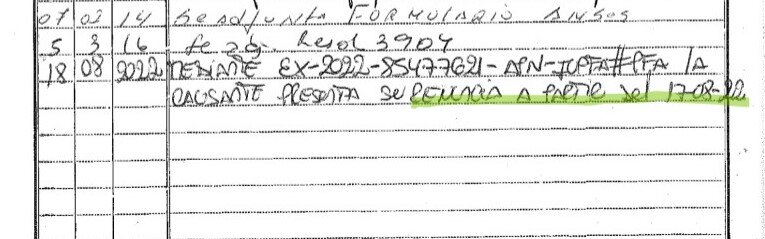 07 02 14 Se adjunta FORMULARIO ANSES
5 3 16 Resol 3904
18 08 2022 MEDIANTE EX-2022-85477621-APN-IUPFA#PFA lA
CAUSANTE PRESENTA SU RENUNCIA A PARTIR del 17-08-22